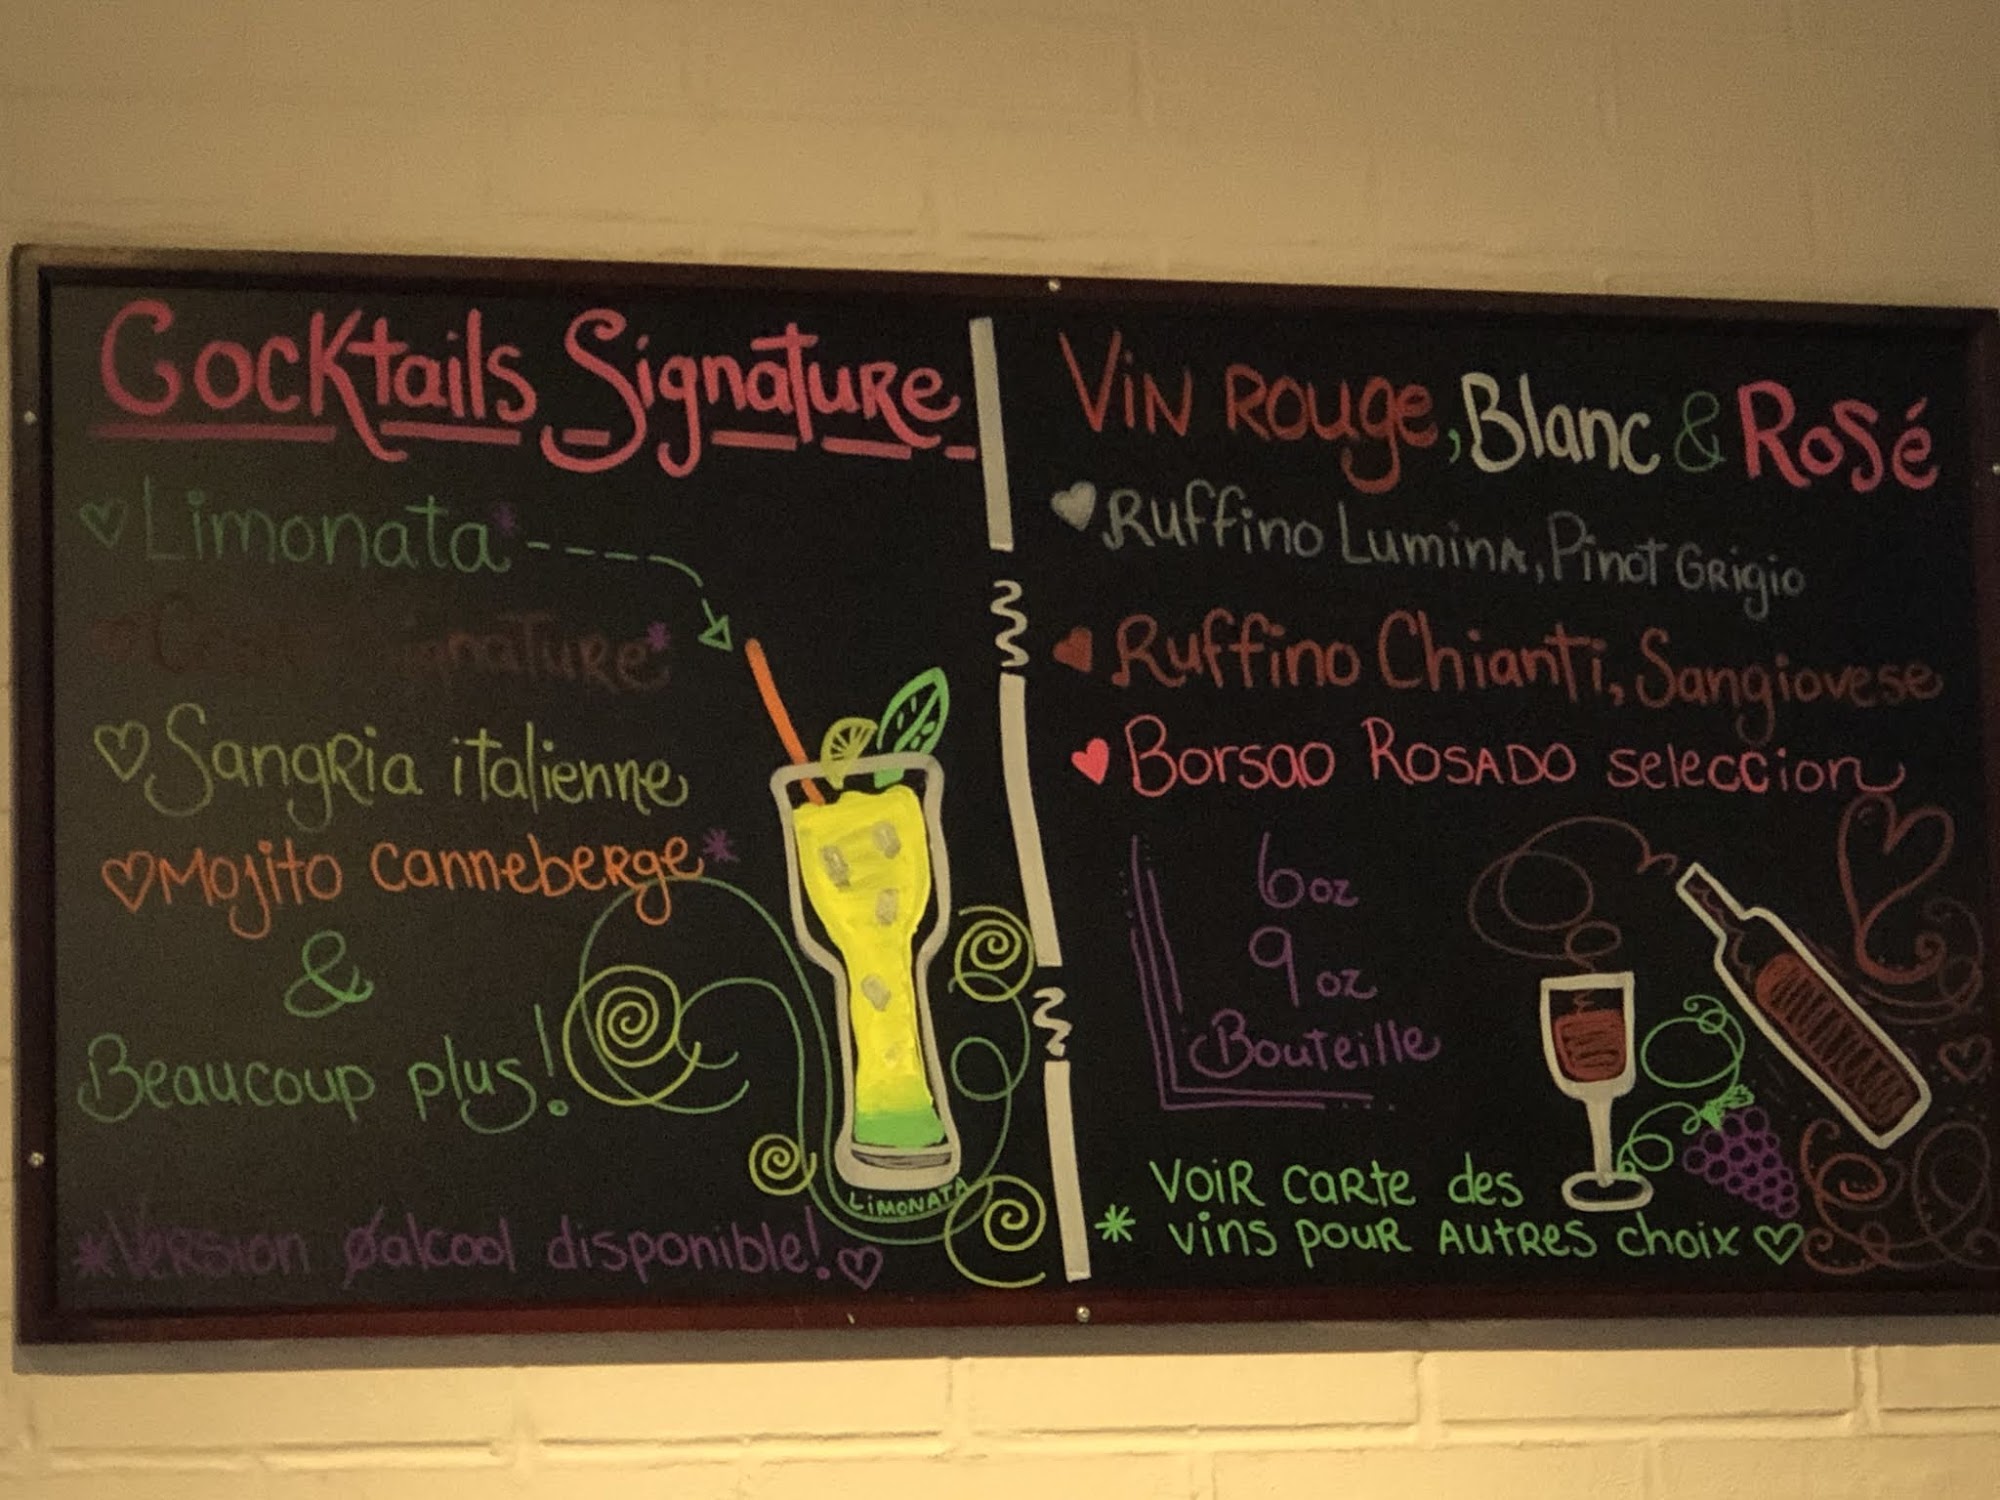 Cocktails Signature
Limonata*
Signature*
Sangria italienne
Mojito canneberge*
&
Beaucoup plus!
LIMONATA
*Version Øalcool disponible!
Vin Rouge, Blanc & Rosé
Ruffino Lumina, Pinot Grigio
Ruffino Chianti, Sangiovese
Borsao Rosado seleccion
6oz
9oz
Bouteille
* Voir carte des
vins pour autres choix